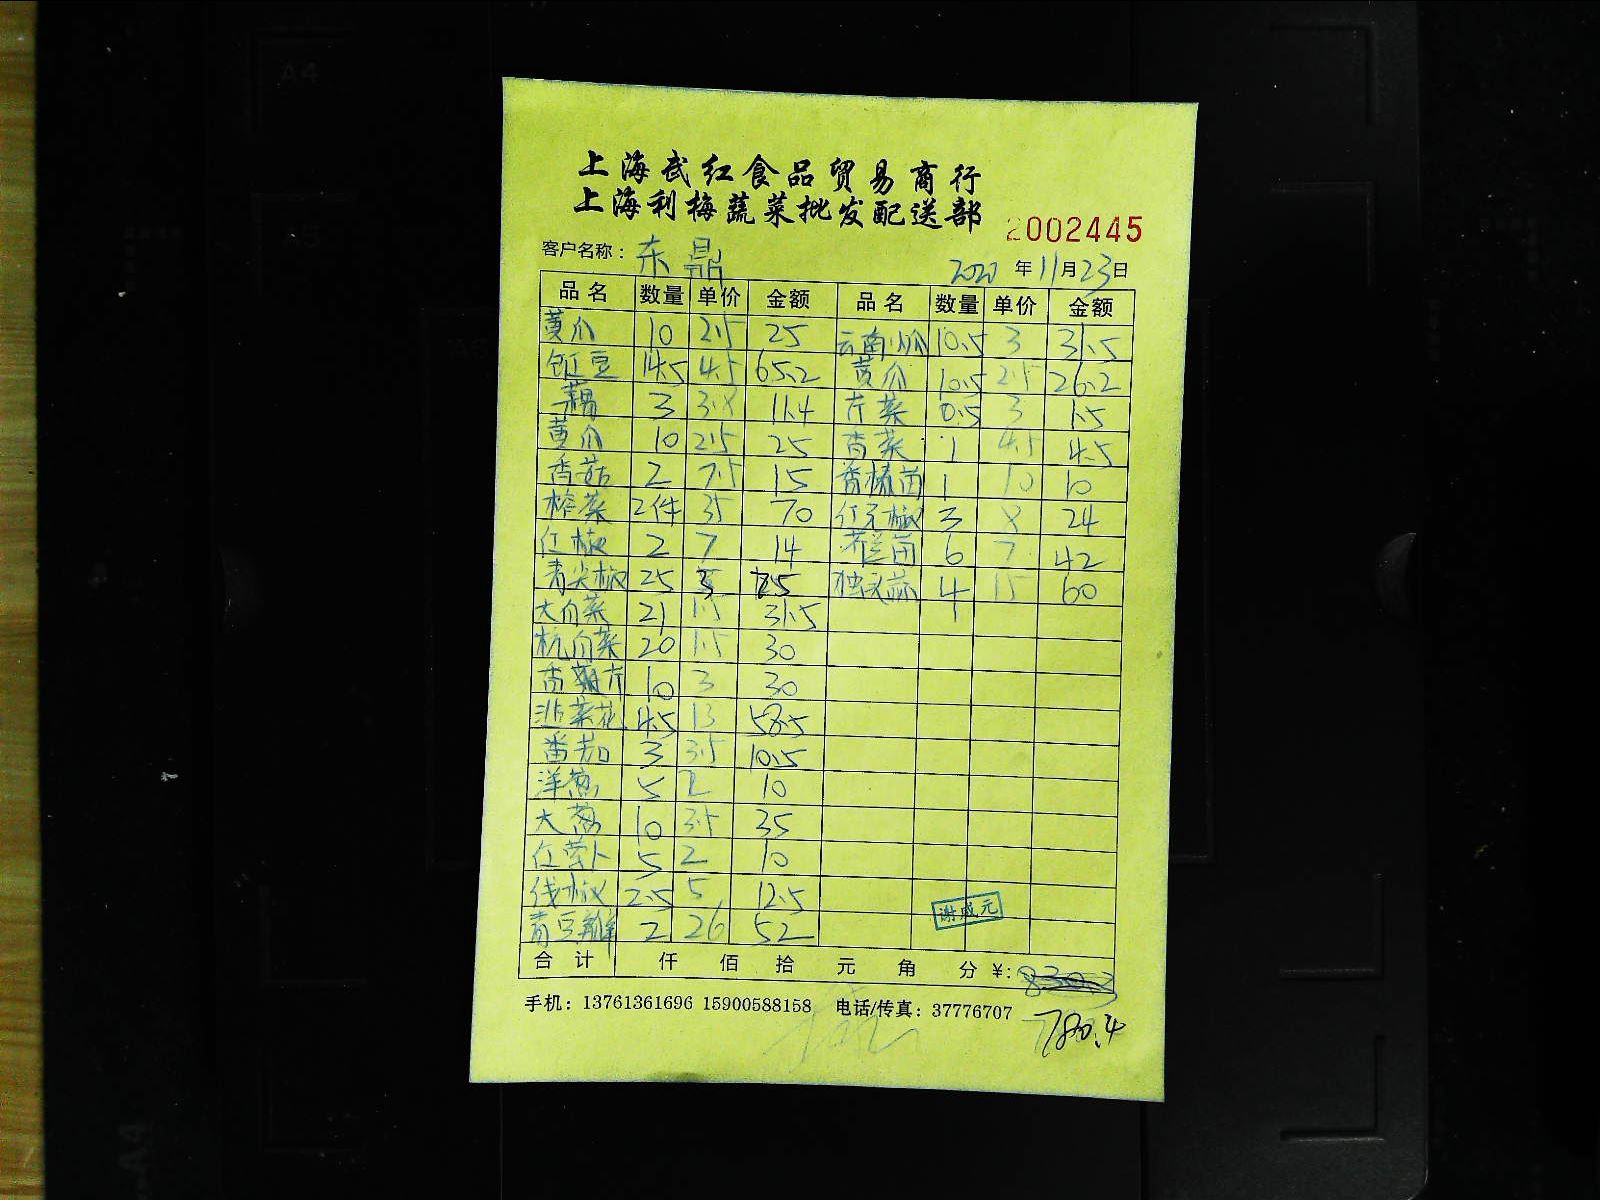 上海武红食品贸易商行
上海利梅蔬菜批发配送部
2002445
客户名称：东鼎
2020年11月23日
品名 数量 单价 金额 品名 数量 单价 金额
黄瓜 10 2.5 25 云南小瓜 10.5 3 31.5
豇豆 14.5 4.5 65.2 黄瓜 10.5 2.5 26.2
藕 3 3.8 11.4 芹菜 0.5 3 1.5
黄瓜 10 2.5 25 香菜 1 4.5 4.5
香菇 2 7.5 15 香椿苗 1 10 10
榨菜 2件 35 70 红尖椒 3 8 24
红椒 2 7 14 苗 6 7 42
青尖椒 25 3 75 独头蒜 4 15 60
大白菜 21 1.5 31.5
杭白菜 20 1.5 30
香芹 10 3 30
韭菜花 4.5 13 58.5
番茄 3 3.5 10.5
洋葱 5 2 10
大葱 10 3.5 35
红萝卜 5 2 10
线椒 2.5 5 12.5
青豆瓣 2 26 52
谢成元
合计 仟 佰 拾 元 角 分 ¥: 830.3
手机：13761361696 15900588158 电话/传真：37776707
780.4